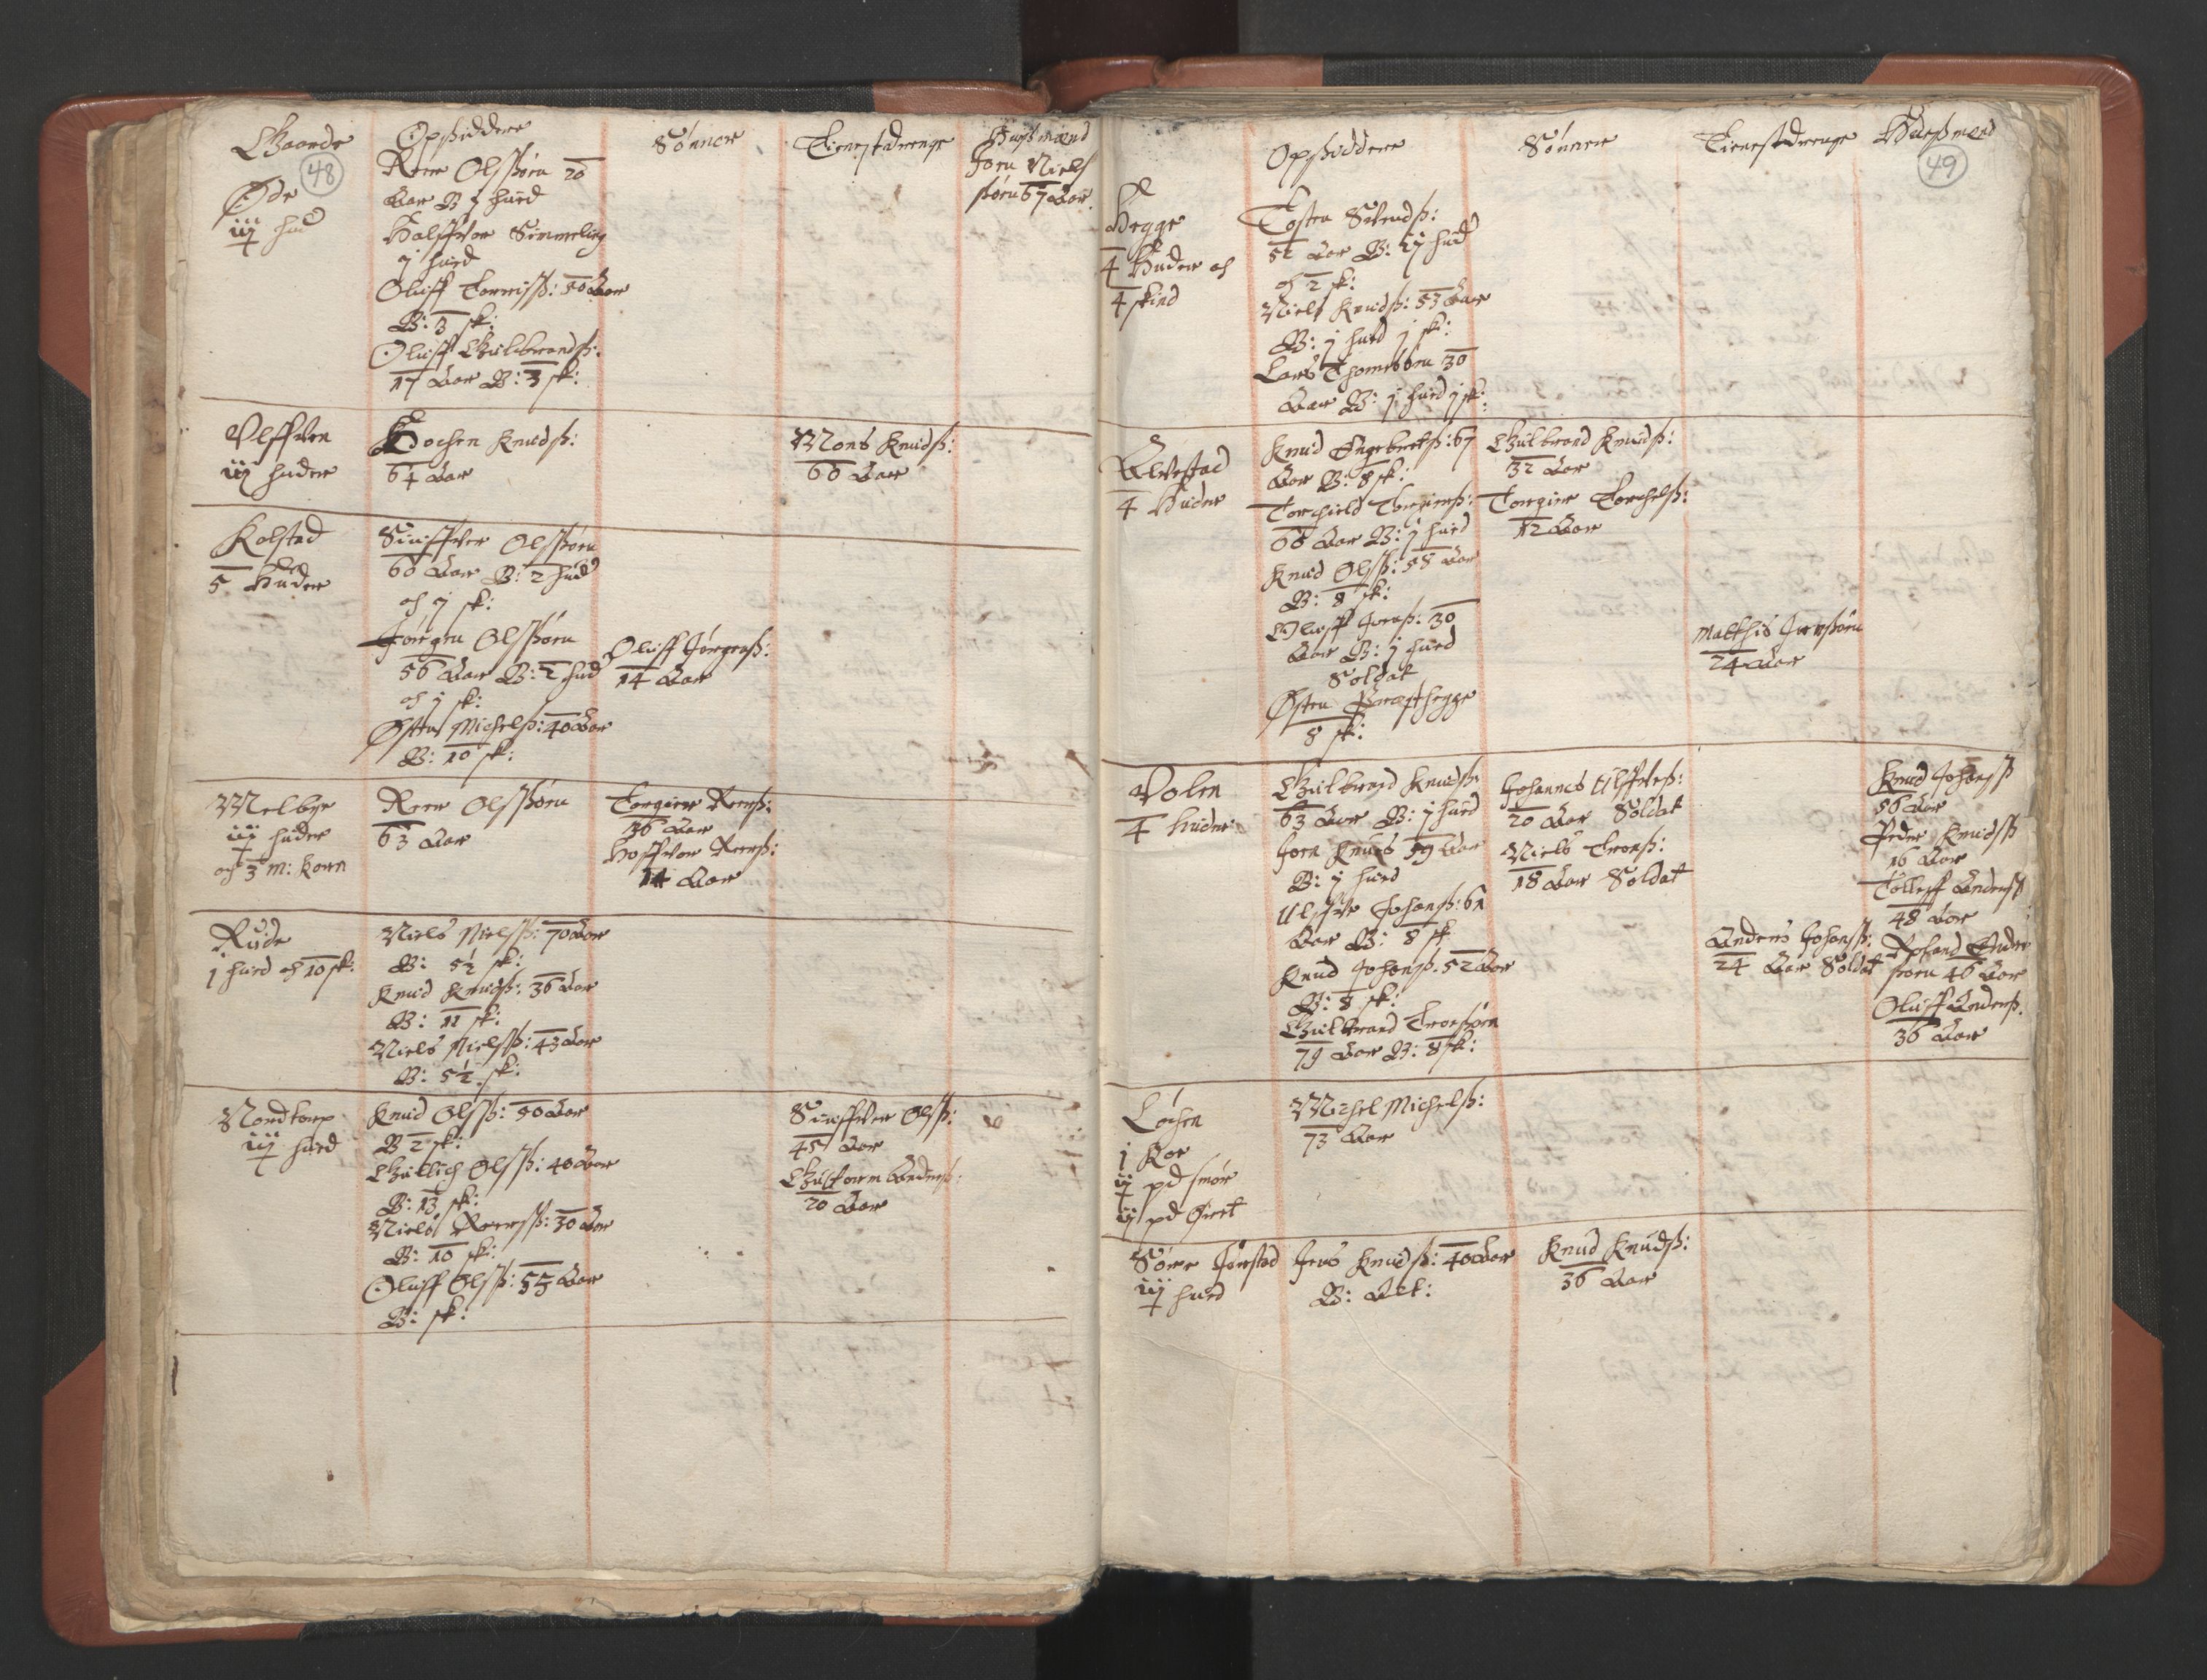 Gaarde
48
Opsiddere
Sønner
Tienestdrenge
Husmænd
Øde
iiij hud
Reer Olssøn 20
Aar B j hued
Halffvor Simmeling
j hued
Oluff Torrisß: 50 Aar
B: 3 sk:
Oluff Gulbrandß:
17 Aar B: 3 sk:
Joen Niels
søen 67 Aar
Ulffven
iij huder
Bochen Knudß:
64 Aar
Mons Knudß:
60 Aar
Kolstad
5 Huder
Siuffver Olssøn
60 Aar B: 2 hud
och j sk:
Jørgen Olssøn
56 Aar B: 2 hud
och j sk:
Østen Michelß: 40 Aar
B: 10 sk:
Oluff Jørgenß:
14 Aar
Melbye
iiij huder
och 3 m: Korn
Reer Olssøn
63 Aar
Torgier Reerß:
36 Aar
Hoffvor Reerß:
14 Aar
Rude
j hued och 10 sk:
Niels Nielsß: 70 Aar
B: 5½ sk:
Knud Knudß: 36 Aar
B: 11 sk:
Niels Nielsß: 43 Aar
B: 5½ sk:
Nordtorp
iiij hued
Knud Olsß: 50 Aar
B 2 sk:
Gutlich Olsß: 40 Aar
B: 13 sk:
Niels Reersß: 30 Aar
B: 10 sk:
Oluff Olsß: 55 Aar
B: sk:
Siuffver Olsß:
45 Aar
Guttorm Anderß:
20 Aar
49
Opsiddere
Sønner
Tienestdrenge
Huusmænd
Hegge
4 Huder och
4 skind
Tosten Svendß:
51 Aar B: ij hud
och 2 sk:
Niels Knudß: 53 Aar
B: j hued j sk:
Lars Thomesøn 30
Aar B: j hued j sk:
Elvestad
4 Huder
Knud Engebretß: 67
Aar B: 8 sk:
Torchield Torgierß:
60 Aar B: j hued
Knud Olsß: 58 Aar
B: 8 sk:
Oluff Jverß: 30
Aar B: j hued
Soldat
Østen Præsthegge
8 sk:
Gulbrand Knudß:
32 Aar
Torgier Torchelß:
12 Aar
Matthis Jverssøn
24 Aar
Volen
4 huder
Gulbrand Knudß:
63 Aar B: j hued
Joen Knuds 59 Aar
B: j hued
Ulffve Johanß: 61
Aar B: 8 sk
Knud Johanß: 52 Aar
B: 8 sk:
Gulbrand Tronssøn
79 Aar B: 8 sk:
Johannes Ulffveß:
20 Aar Soldat
Niels Tronß:
18 Aar Soldat
Anders Johanß:
24 Aar Soldat
Knud Johanß
56 Aar
Peder Knudß
16 Aar
Tolleff Anderß
48 Aar
Roland Ander
søen 46 Aar
Oluff Anderß.
36 Aar
Løchen
j Kor
ij pd smør
iij pd Giert
Michel Michelß:
73 Aar
Sørre Jørstad
iiij hued
Jens Knudß: 40 Aar
B: Alt:
Knud Knudß:
36 Aar